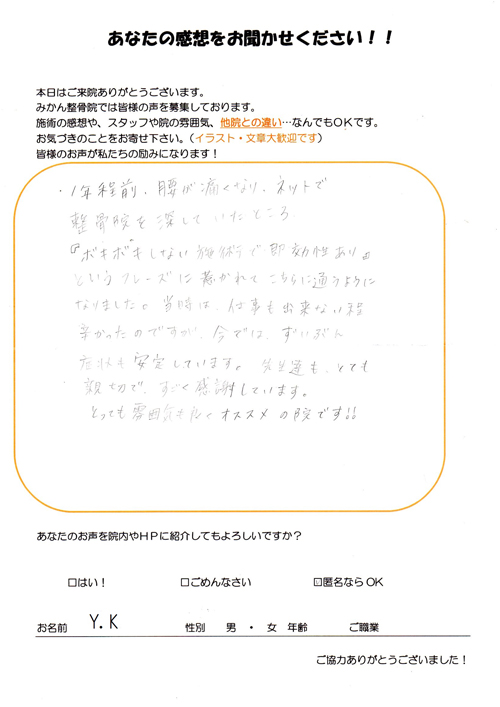 あなたの感想をお聞かせください！！
本日はご来院ありがとうございます。
みかん整骨院では皆様の声を募集しております。
施術の感想や、スタッフや院の雰囲気、他院との違い…なんでもOKです。
お気づきのことをお寄せ下さい。（イラスト・文章大歓迎です）
皆様のお声が私たちの励みになります！
・1年程前、腰が痛くなり、ネットで
整骨院を探していたところ
『ボキボキしない施術で即効性あり』
というフレーズに惹かれてこちらに通うように
なりました。当時は、仕事も出来ない程
辛かったのですが、今では、ずいぶん
症状も安定しています。先生達も、とても
親切で、すごく感謝しています。
とっても雰囲気も良くオススメの院です!!
あなたのお声を院内やＨＰに紹介してもよろしいですか？
□はい！ □ごめんなさい ☑匿名なら OK
お名前 Y.K 性別 男 ・ 女 年齢 ご職業
ご協力ありがとうございました！